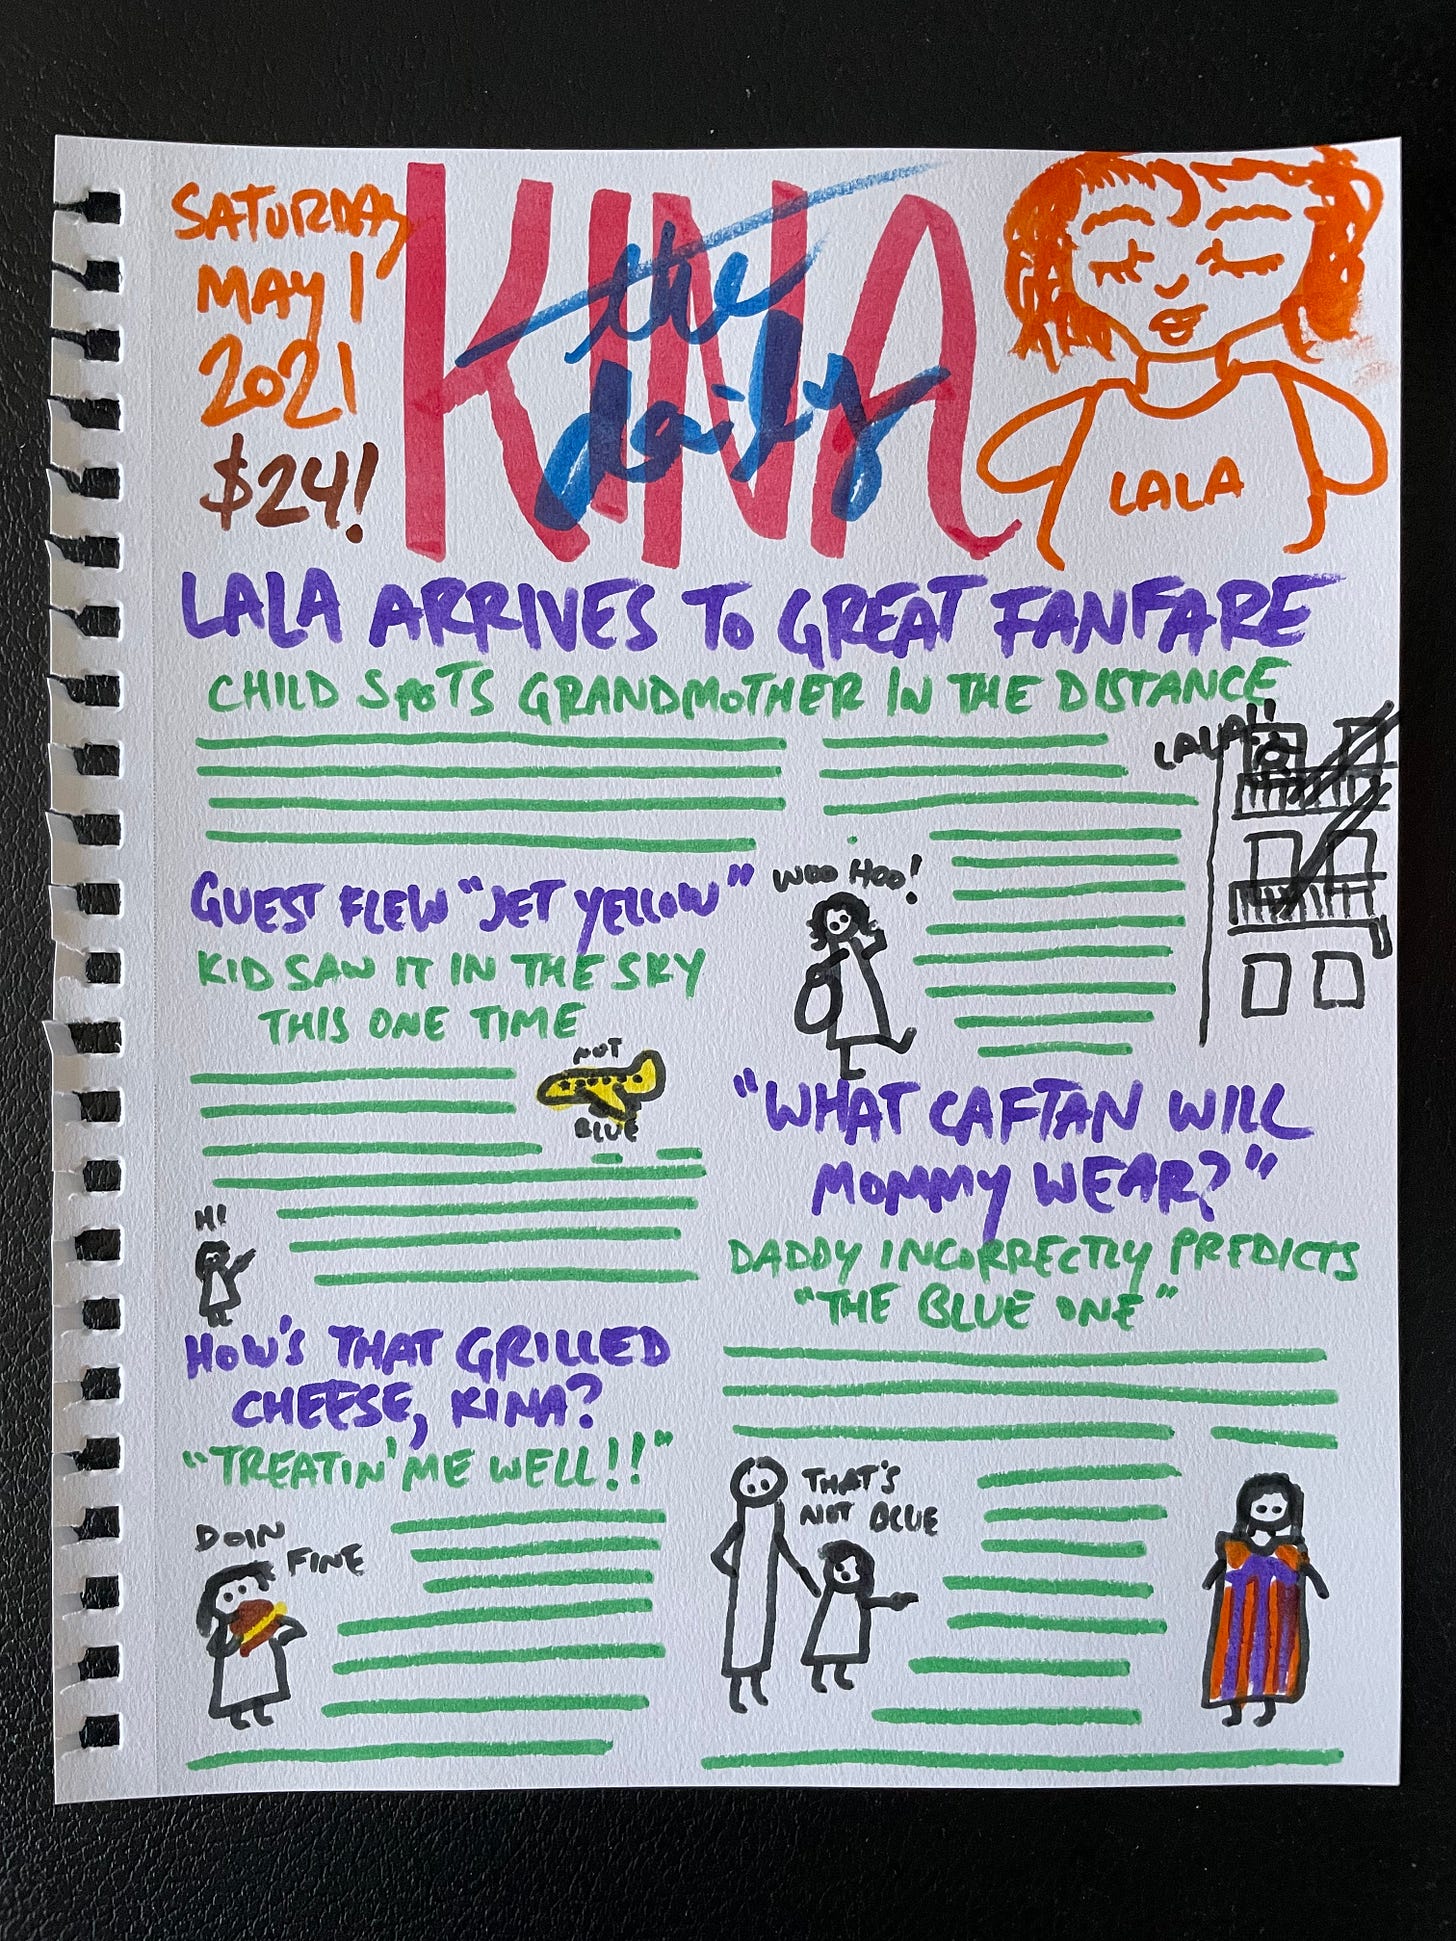 SATURDAY
MAY 1
2021
$24!
the
daily
KINA
LALA
LALA ARRIVES TO GREAT FANFARE
CHILD SPOTS GRANDMOTHER IN THE DISTANCE
LALA!!
WOO HOO!
GUEST FLEW "JET YELLOW"
KID SAW IT IN THE SKY
THIS ONE TIME
NOT
BLUE
HI
"WHAT CAFTAN WILL
MOMMY WEAR?"
DADDY INCORRECTLY PREDICTS
"THE BLUE ONE"
THAT'S
NOT BLUE
HOW'S THAT GRILLED
CHEESE, KINA?
"TREATIN' ME WELL!!"
DOIN
FINE